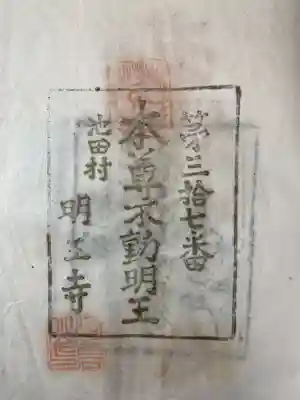 第三拾七番
本尊不動明王
池田村
明王寺